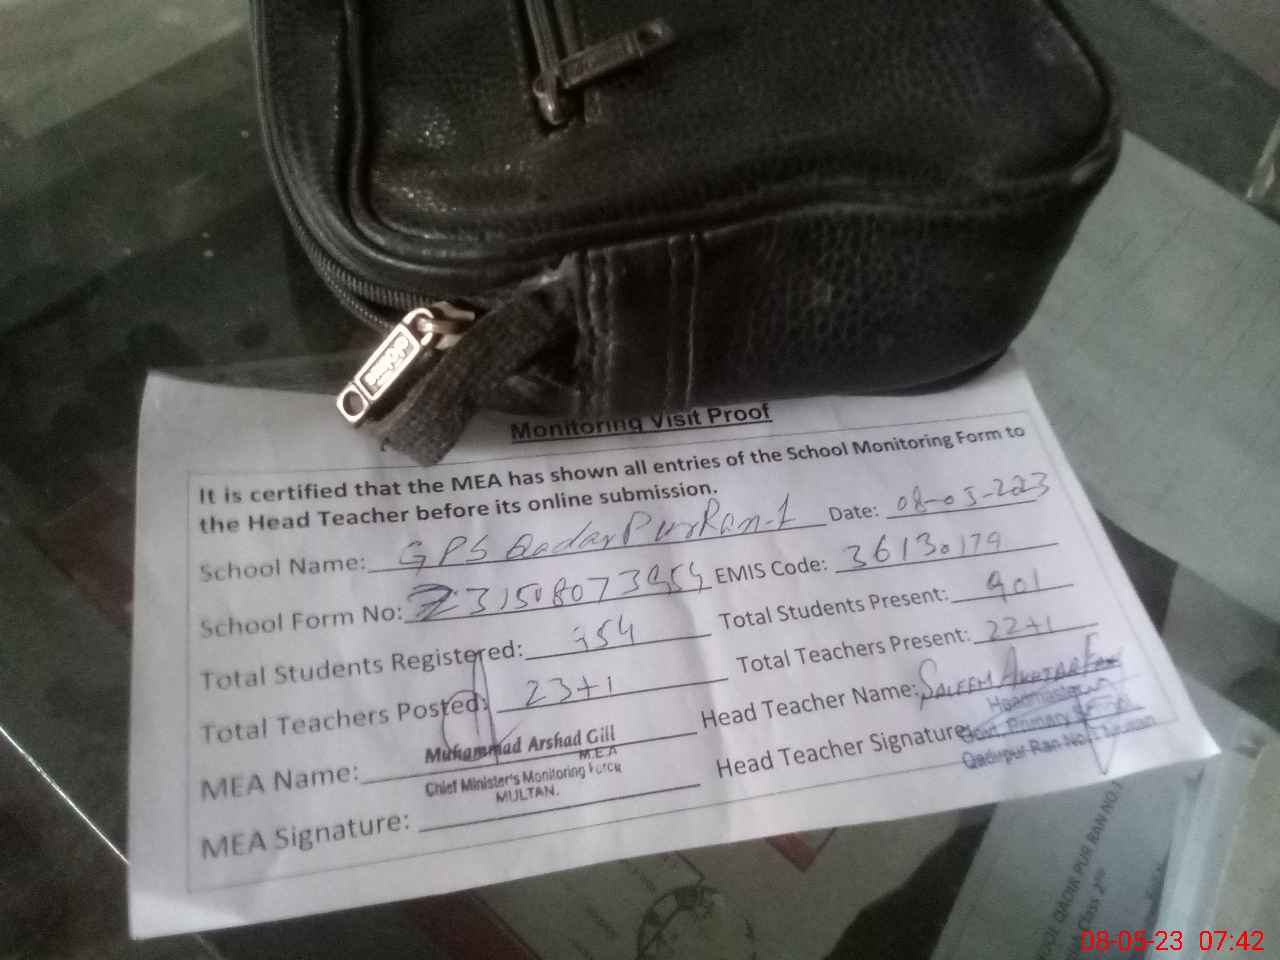 Monitoring Visit Proof
It is certified that the MEA has shown all entries of the School Monitoring Form to
the Head Teacher before its online submission.
School Name: GPS Qadar Pur Ran-1 Date: 08-05-223
School Form No: 231508073954 EMIS Code: 36130179
Total Students Registered: 954 Total Students Present: 901
Total Teachers Posted: 23+1 Total Teachers Present: 22+1
MEA Name: Muhammad Arshad Gill Head Teacher Name: SALEEM AKHTAR
M.E.A
Chief Minister's Monitoring Force
MULTAN.
MEA Signature: Head Teacher Signature:
Headmaster
Govt. Primary School
Qadirpur Ran No. 1 Multan
QADIR PUR RAN NO.1
Class 2nd
08-05-23 07:42